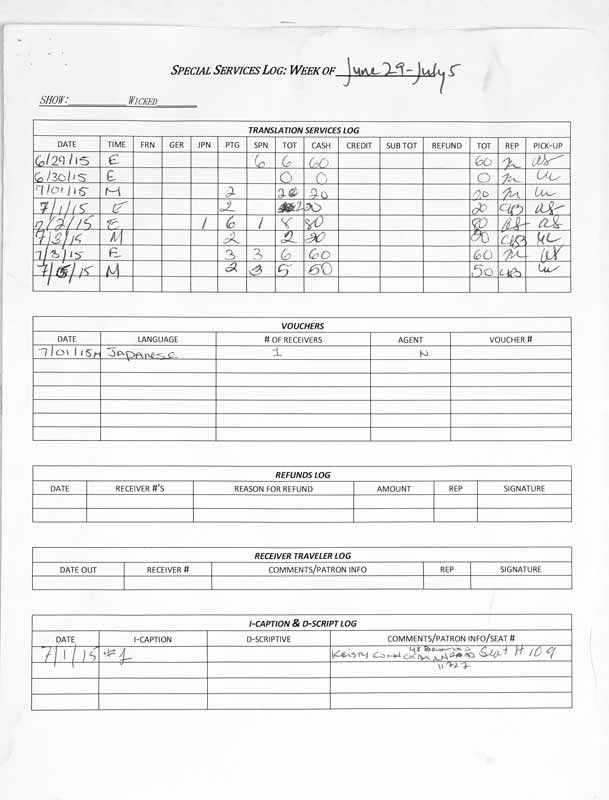 SPECIAL SERVICES LOG: WEEK OF June 29-July 5
SHOW: WICKED
TRANSLATION SERVICES LOG
DATE TIME FRN GER JPN PTG SPN TOT CASH CREDIT SUB TOT REFUND TOT REP PICK-UP
6/29/15 E 6 6 60 60 as
6/30/15 E 0 0 0
7/01/15 M 2 2 20 20
7/1/15 E 2 20 20 CKB as
7/2/15 E 1 6 1 8 80 80 as as
7/3/15 M 2 2 20 20 CKB
7/3/15 E 3 3 6 60 60 as
7/5/15 M 2 3 5 50 50 CKB
VOUCHERS
DATE LANGUAGE # OF RECEIVERS AGENT VOUCHER #
7/01/15M JAPANESE 1 N
REFUNDS LOG
DATE RECEIVER #'S REASON FOR REFUND AMOUNT REP SIGNATURE
RECEIVER TRAVELER LOG
DATE OUT RECEIVER # COMMENTS/PATRON INFO REP SIGNATURE
I-CAPTION & D-SCRIPT LOG
DATE I-CAPTION D-SCRIPTIVE COMMENTS/PATRON INFO/SEAT #
7/1/15 #1 Seat H 109
11727